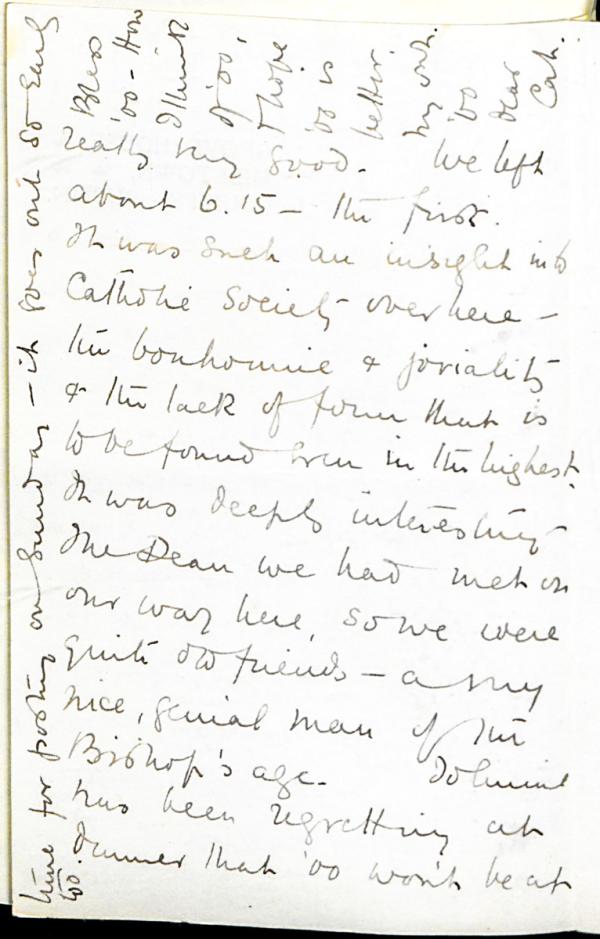 really very good. We left
about 6.15 – the first.
It was such an insight into
Catholic Society over here –
the bonhomie & joviality
& the lack of form that is
to be found even in the highest.
It was deeply interesting
The Dean we had met on
our way here, so we were
quite old friends – a very
nice, genial man of the
Bishop's age.
has been regretting at
dinner that 'oo won't be at
time for posting on Sunday – it goes out so early
too.
Bless
'oo – How
I think
of 'oo,
I hope
'oo is
better.
my own.
'oo
dear
Cat.